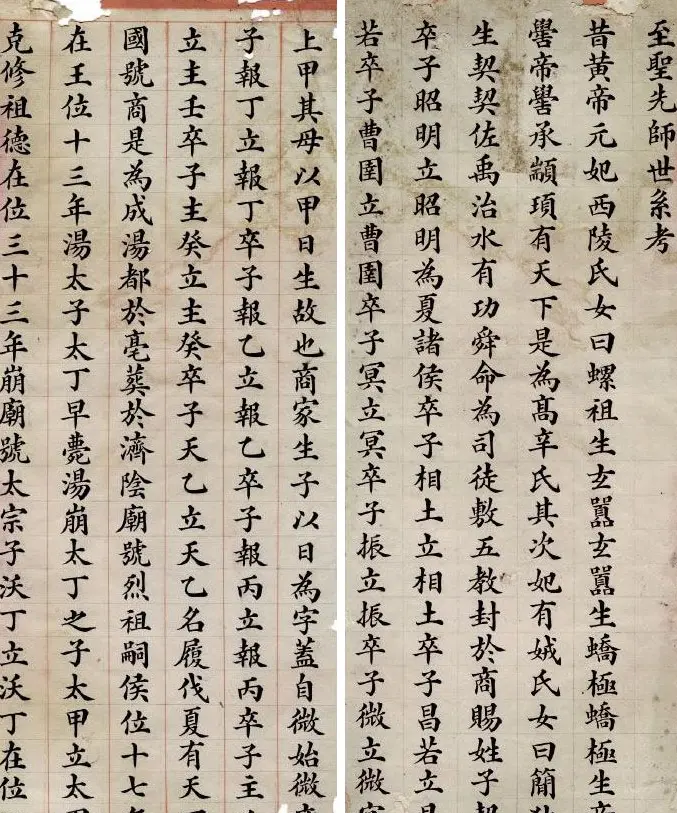 至聖先師世系考
昔黃帝元妃西陵氏女曰螺祖生玄囂玄囂生蟜極蟜極生帝
嚳帝嚳承顓頊有天下是為髙辛氏其次妃有娀氏女曰簡狄
生契契佐禹治水有功舜命為司徒敷五教封於商賜姓子契
卒子昭明立昭明為夏諸侯卒子相土立相土卒子昌若立昌
若卒子曹圉立曹圉卒子冥立冥卒子振立振卒子微立微字
上甲其母以甲日生故也商家生子以日為字蓋自微始微卒
子報丁立報丁卒子報乙立報乙卒子報丙立報丙卒子主
立主壬卒子主癸立主癸卒子天乙立天乙名履伐夏有天
國號商是為成湯都於亳葬於濟陰廟號烈祖嗣侯位十七年
在王位十三年湯太子太丁早薨湯崩太丁之子太甲立太甲
克修祖德在位三十三年崩廟號太宗子沃丁立沃丁在位